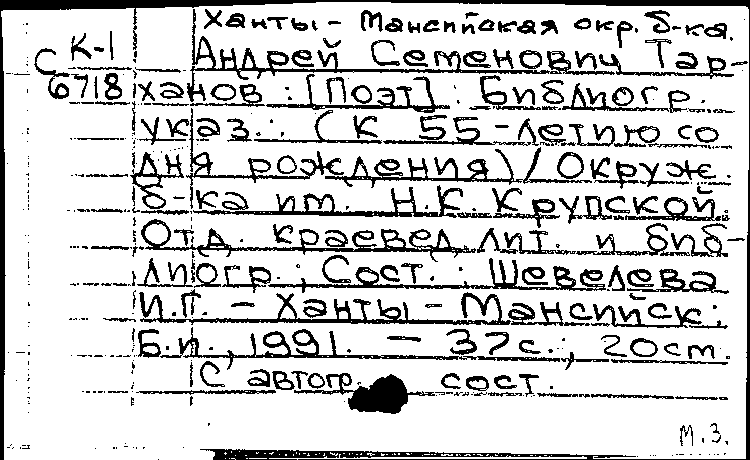 Ханты - Мансийская окр. б-ка.
К-1
С
6718
Андрей Семенович Тар-
ханов : [Поэт] : Библиогр.
указ. : (К 55-летию со
дня рождения) / Окруж.
б-ка им. Н.К. Крупской.
Отд. краевед. лит. и биб-
лиогр. ; Сост. : Шевелева
И.Г. - Ханты - Мансийск :
Б.и., 1991. - 37с. ; 20см.
С автогр. сост.
М.З.